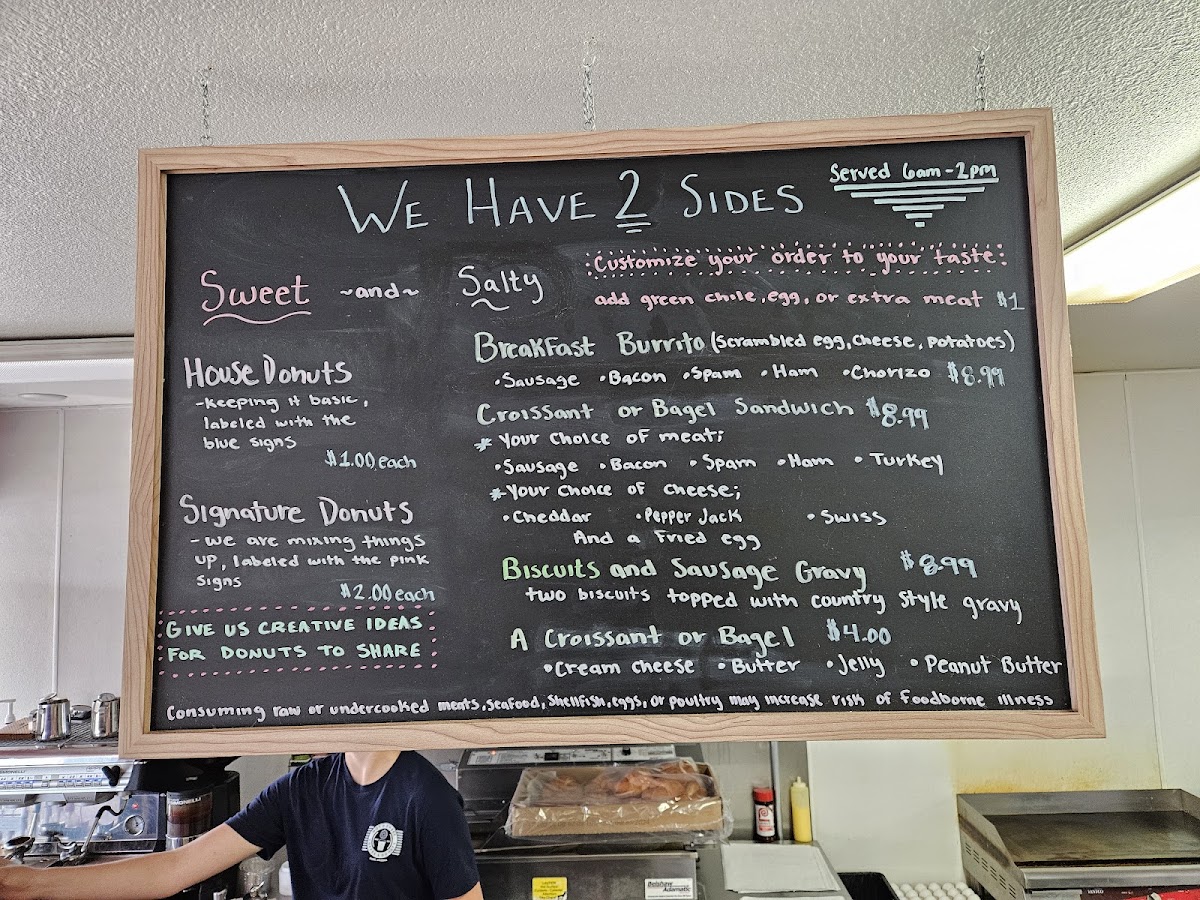 WE HAVE 2 SIDES
Served 6am-2pm
Sweet ~and~ Salty
Customize your order to your taste:
add green chile, egg, or extra meat $1
House Donuts
-Keeping it basic,
labeled with the
blue signs
$1.00 each
Signature Donuts
-we are mixing things
up, labeled with the pink
signs
$2.00 each
GIVE US CREATIVE IDEAS
FOR DONUTS TO SHARE
Breakfast Burrito (scrambled egg, cheese, potatoes)
•Sausage •Bacon •Spam •Ham •Chorizo $8.99
Croissant or Bagel Sandwich $8.99
* Your choice of meat;
•Sausage •Bacon •Spam •Ham •Turkey
*Your choice of cheese;
•Cheddar •Pepper Jack •Swiss
And a Fried egg
Biscuits and Sausage Gravy $8.99
two biscuits topped with country style gravy
A Croissant or Bagel $4.00
•Cream cheese •Butter •Jelly •Peanut Butter
Consuming raw or undercooked meats, seafood, shellfish, eggs, or poultry may increase risk of foodborne illness
Belshaw
Adamatic